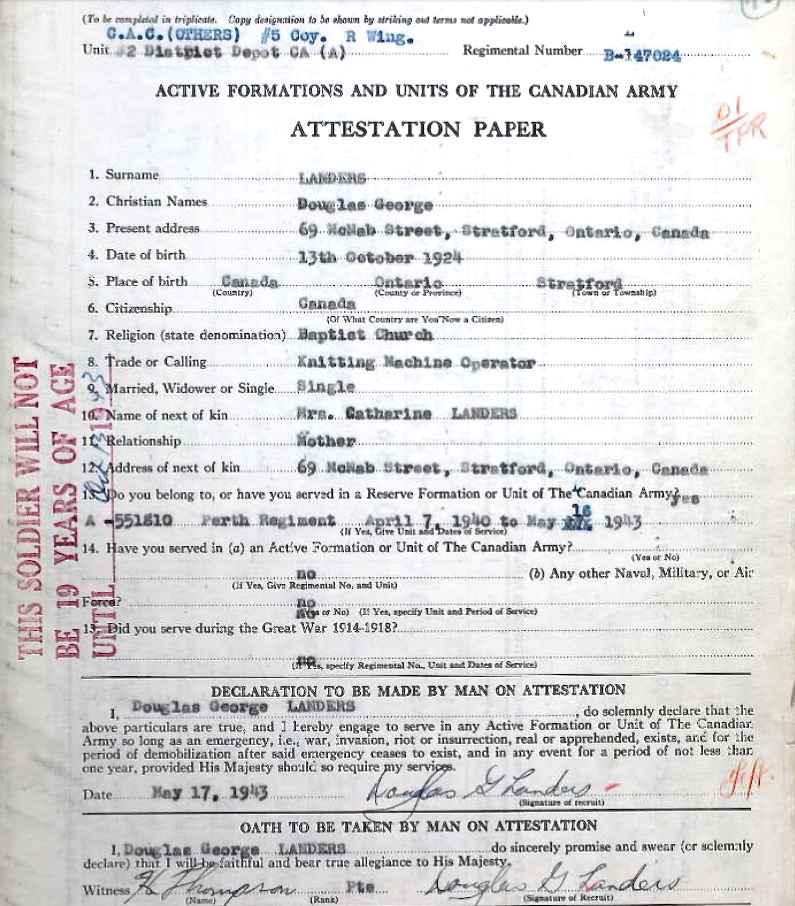 (To be completed in triplicate. Copy designation to be shown by striking out terms not applicable.)
C.A.C.(OTHERS) #5 Coy. R Wing.
Unit #2 District Depot CA (A) Regimental Number B-147024
ACTIVE FORMATIONS AND UNITS OF THE CANADIAN ARMY
ATTESTATION PAPER
1. Surname LANDERS
2. Christian Names Douglas George
3. Present address 69 McNab Street, Stratford, Ontario, Canada
4. Date of birth 13th October 1924
5. Place of birth Canada Ontario Stratford
(Country) (County or Province) (Town or Township)
6. Citizenship Canada
(Of What Country are You Now a Citizen)
7. Religion (state denomination) Baptist Church
8. Trade or Calling Knitting Machine Operator
9. Married, Widower or Single Single
10. Name of next of kin Mrs. Catharine LANDERS
11. Relationship Mother
12. Address of next of kin 69 McNab Street, Stratford, Ontario, Canada
13. Do you belong to, or have you served in a Reserve Formation or Unit of The Canadian Army? yes
A -551810 Perth Regiment April 7, 1940 to May 16 1943
(If Yes, Give Unit and Dates of Service)
14. Have you served in (a) an Active Formation or Unit of The Canadian Army?
(Yes or No)
no (b) Any other Naval, Military, or Air
(If Yes, Give Regimental No, and Unit)
Force? no
(Yes or No) (If Yes, specify Unit and Period of Service)
15. Did you serve during the Great War 1914-1918?
no
(If Yes, specify Regimental No., Unit and Dates of Service)
THIS SOLDIER WILL NOT
BE 19 YEARS OF AGE
UNTIL
DECLARATION TO BE MADE BY MAN ON ATTESTATION
I, Douglas George LANDERS, do solemnly declare that the
above particulars are true, and I hereby engage to serve in any Active Formation or Unit of The Canadian
Army so long as an emergency, i.e., war, invasion, riot or insurrection, real or apprehended, exists, and for the
period of demobilization after said emergency ceases to exist, and in any event for a period of not less than
one year, provided His Majesty should so require my services.
Date May 17, 1943 Douglas G Landers
(Signature of recruit)
OATH TO BE TAKEN BY MAN ON ATTESTATION
I, Douglas George LANDERS do sincerely promise and swear (or solemnly
declare) that I will be faithful and bear true allegiance to His Majesty.
Witness H Thompson Pte Douglas G Landers
(Name) (Rank) (Signature of Recruit)